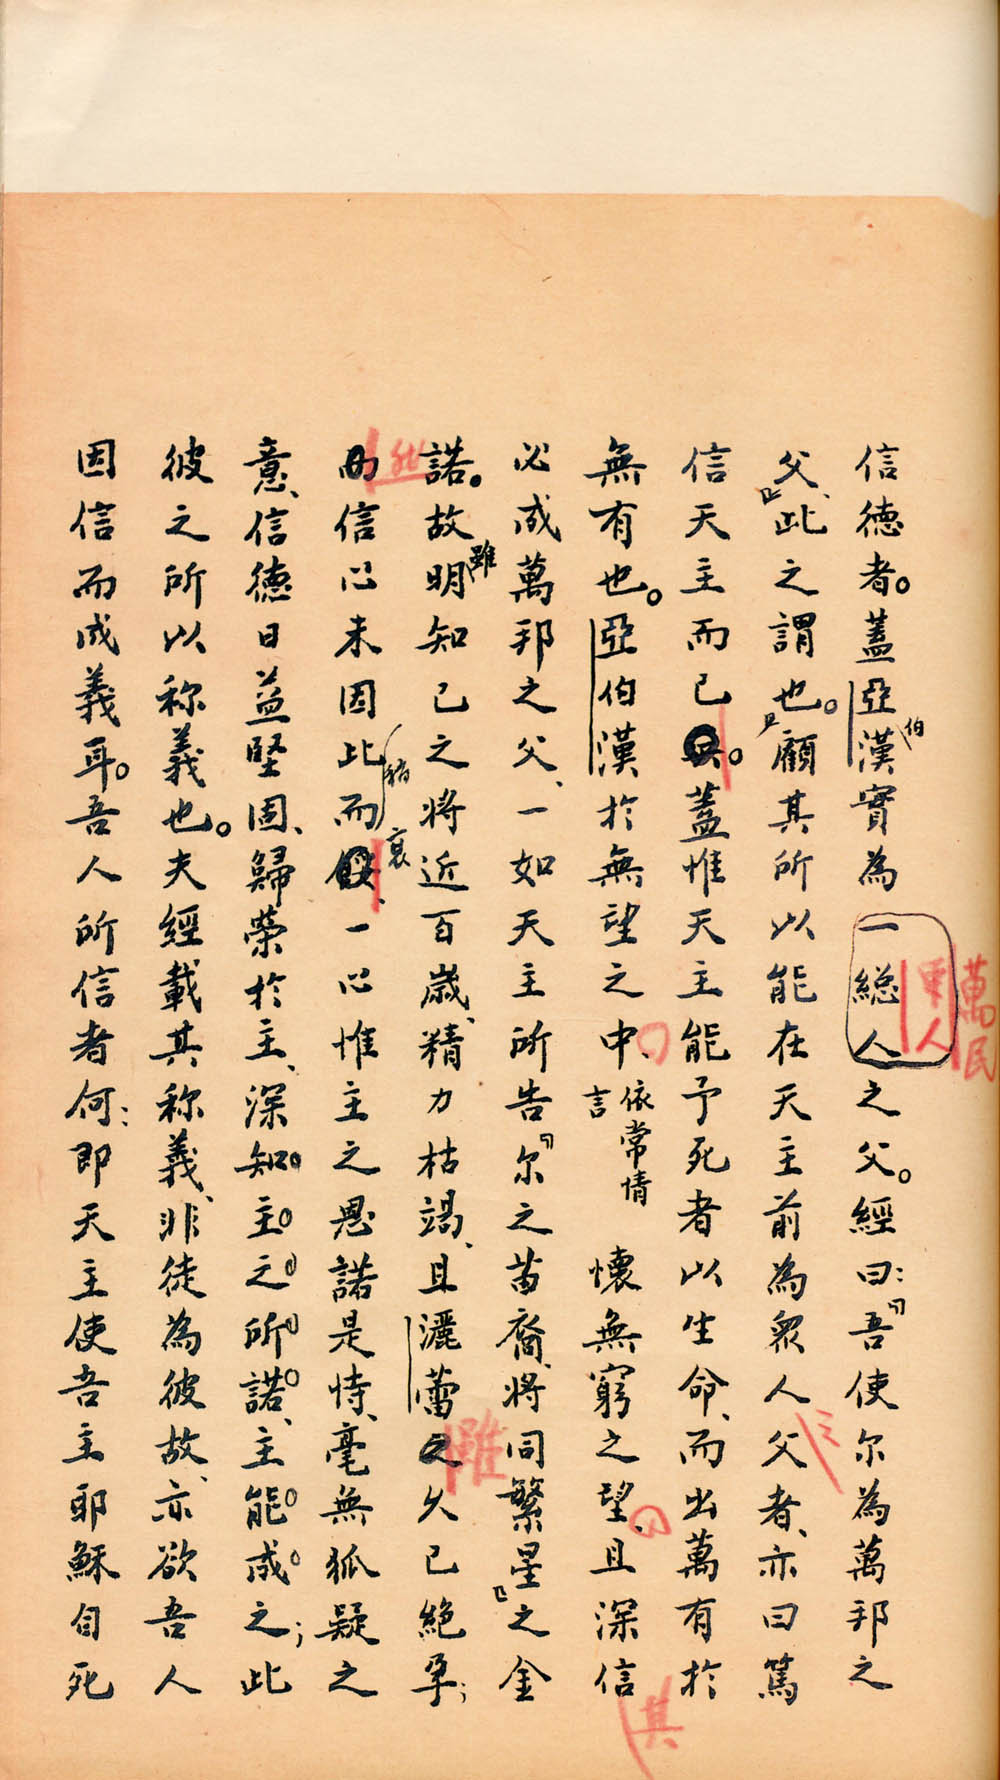 信德者。蓋亞伯漢實為一總人之父。經曰：「吾使尔為萬邦之
萬民
父、」此之謂也。顧其所以能在天主前為眾人父者、亦曰篤
信天主而已。蓋惟天主能予死者以生命、而出萬有於
無有也。亞伯漢於無望之中、依常情言懷無窮之望、且深信
其
必成萬邦之父、一如天主所告「尔之苗裔、將同繁星」之金
諾。故雖明知己之將近百歲、精力枯竭、且灑蕾之久已絕孕；
雖
而信心未因此而稍衰、一心惟主之恩諾是恃、毫無狐疑之
意、信德日益堅固、歸榮於主、深知主之所諾、主能成之；此
彼之所以称義也。夫經載其称義、非徒為彼故、亦欲吾人
因信而成義耳。吾人所信者何：即天主使吾主耶穌自死